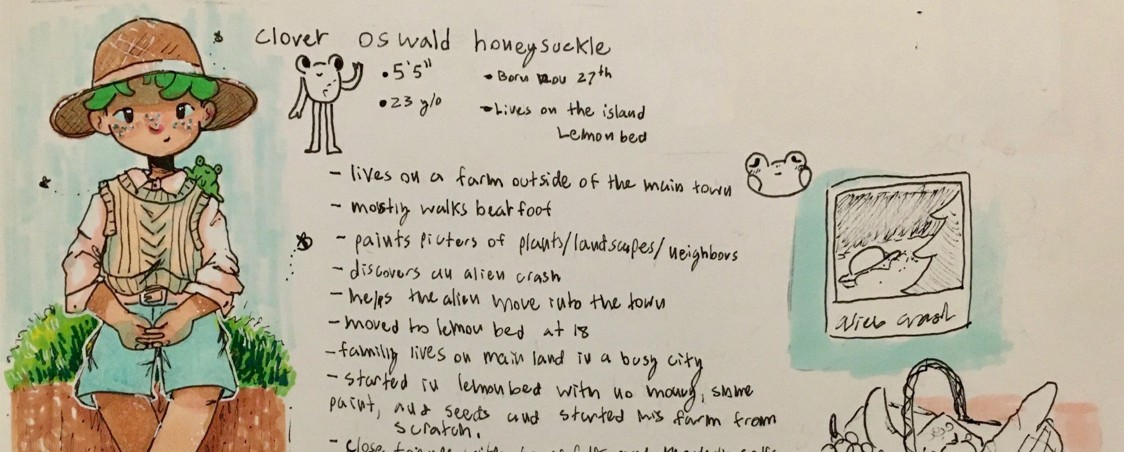 clover oswald honeysuckle
• 5'5"
• Born nov 27th
• 23 y/o
• Lives on the island
Lemon bed
- lives on a farm outside of the main town
- mostly walks bearfoot
- paints picters of plants/landscapes/neighbors
- discovers an alien crash
- helps the alien move into the town
- moved to lemon bed at 18
- familiy lives on main land in a busy city
- started in lemonbed with no money, some
paint, and seeds and started his farm from
scratch.
- close friends with
alien crash